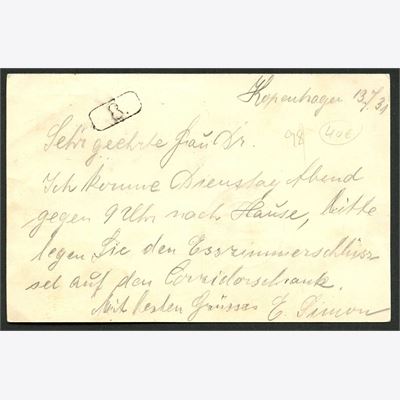 Kopenhagen 13/7 31
8.
Sehr geehrte Frau Dr.
98
40€
Ich komme Dienstag Abend
gegen 9 Uhr nach Hause, bitte
legen Sie den Esszimmerschlüs=
sel auf den Corridorschrank.
Mit besten Grüssen E. Simon